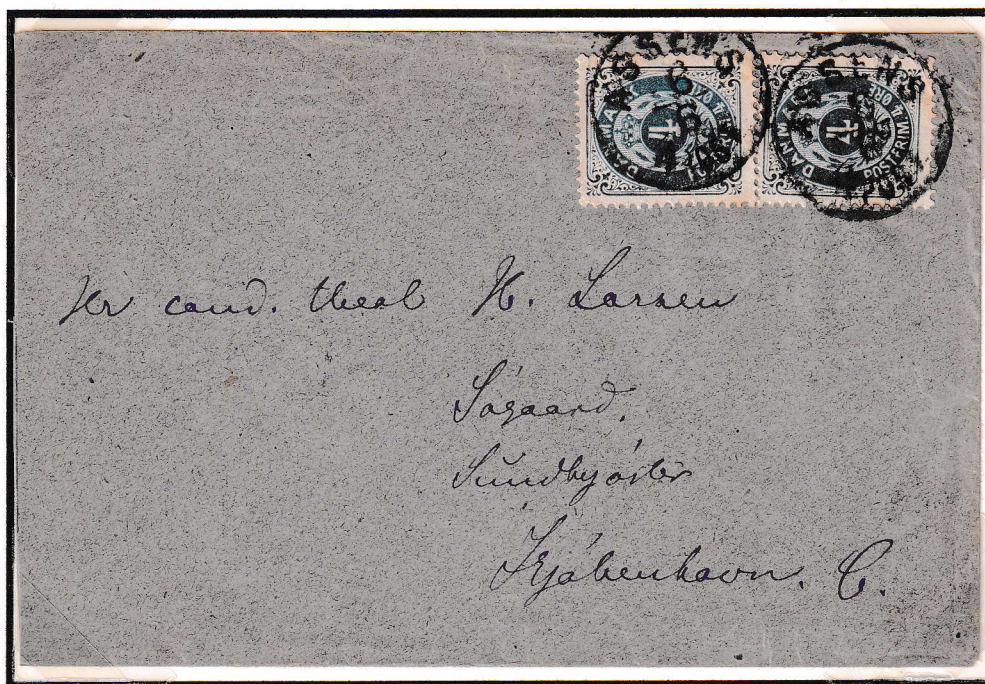 ASSENS
ASSENS
DANMARK
4
DANMARK POSTFRIM 4 ØRE
4
Hr cand. theol H. Larsen
Søgaard,
Sundbyøster
Kjøbenhavn. C.